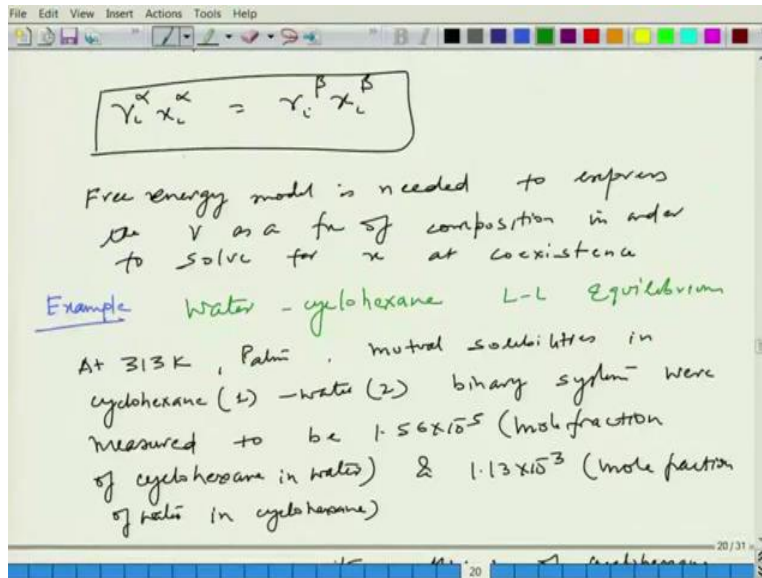 File Edit View Insert Actions Tools Help
B I
γᵢ^α xᵢ^α = γᵢ^β xᵢ^β
Free energy model is needed to express
the γ as a fn of composition in order
to solve for x at coexistence
Example Water - cyclohexane L-L Equilibrium
At 313K, Patm, mutual solubilities in
cyclohexane (1) - water (2) binary system were
measured to be 1.56x10⁻⁵ (mole fraction
of cyclohexane in water) & 1.13x10⁻³ (mole fraction
of water in cyclohexane)
20/31
20